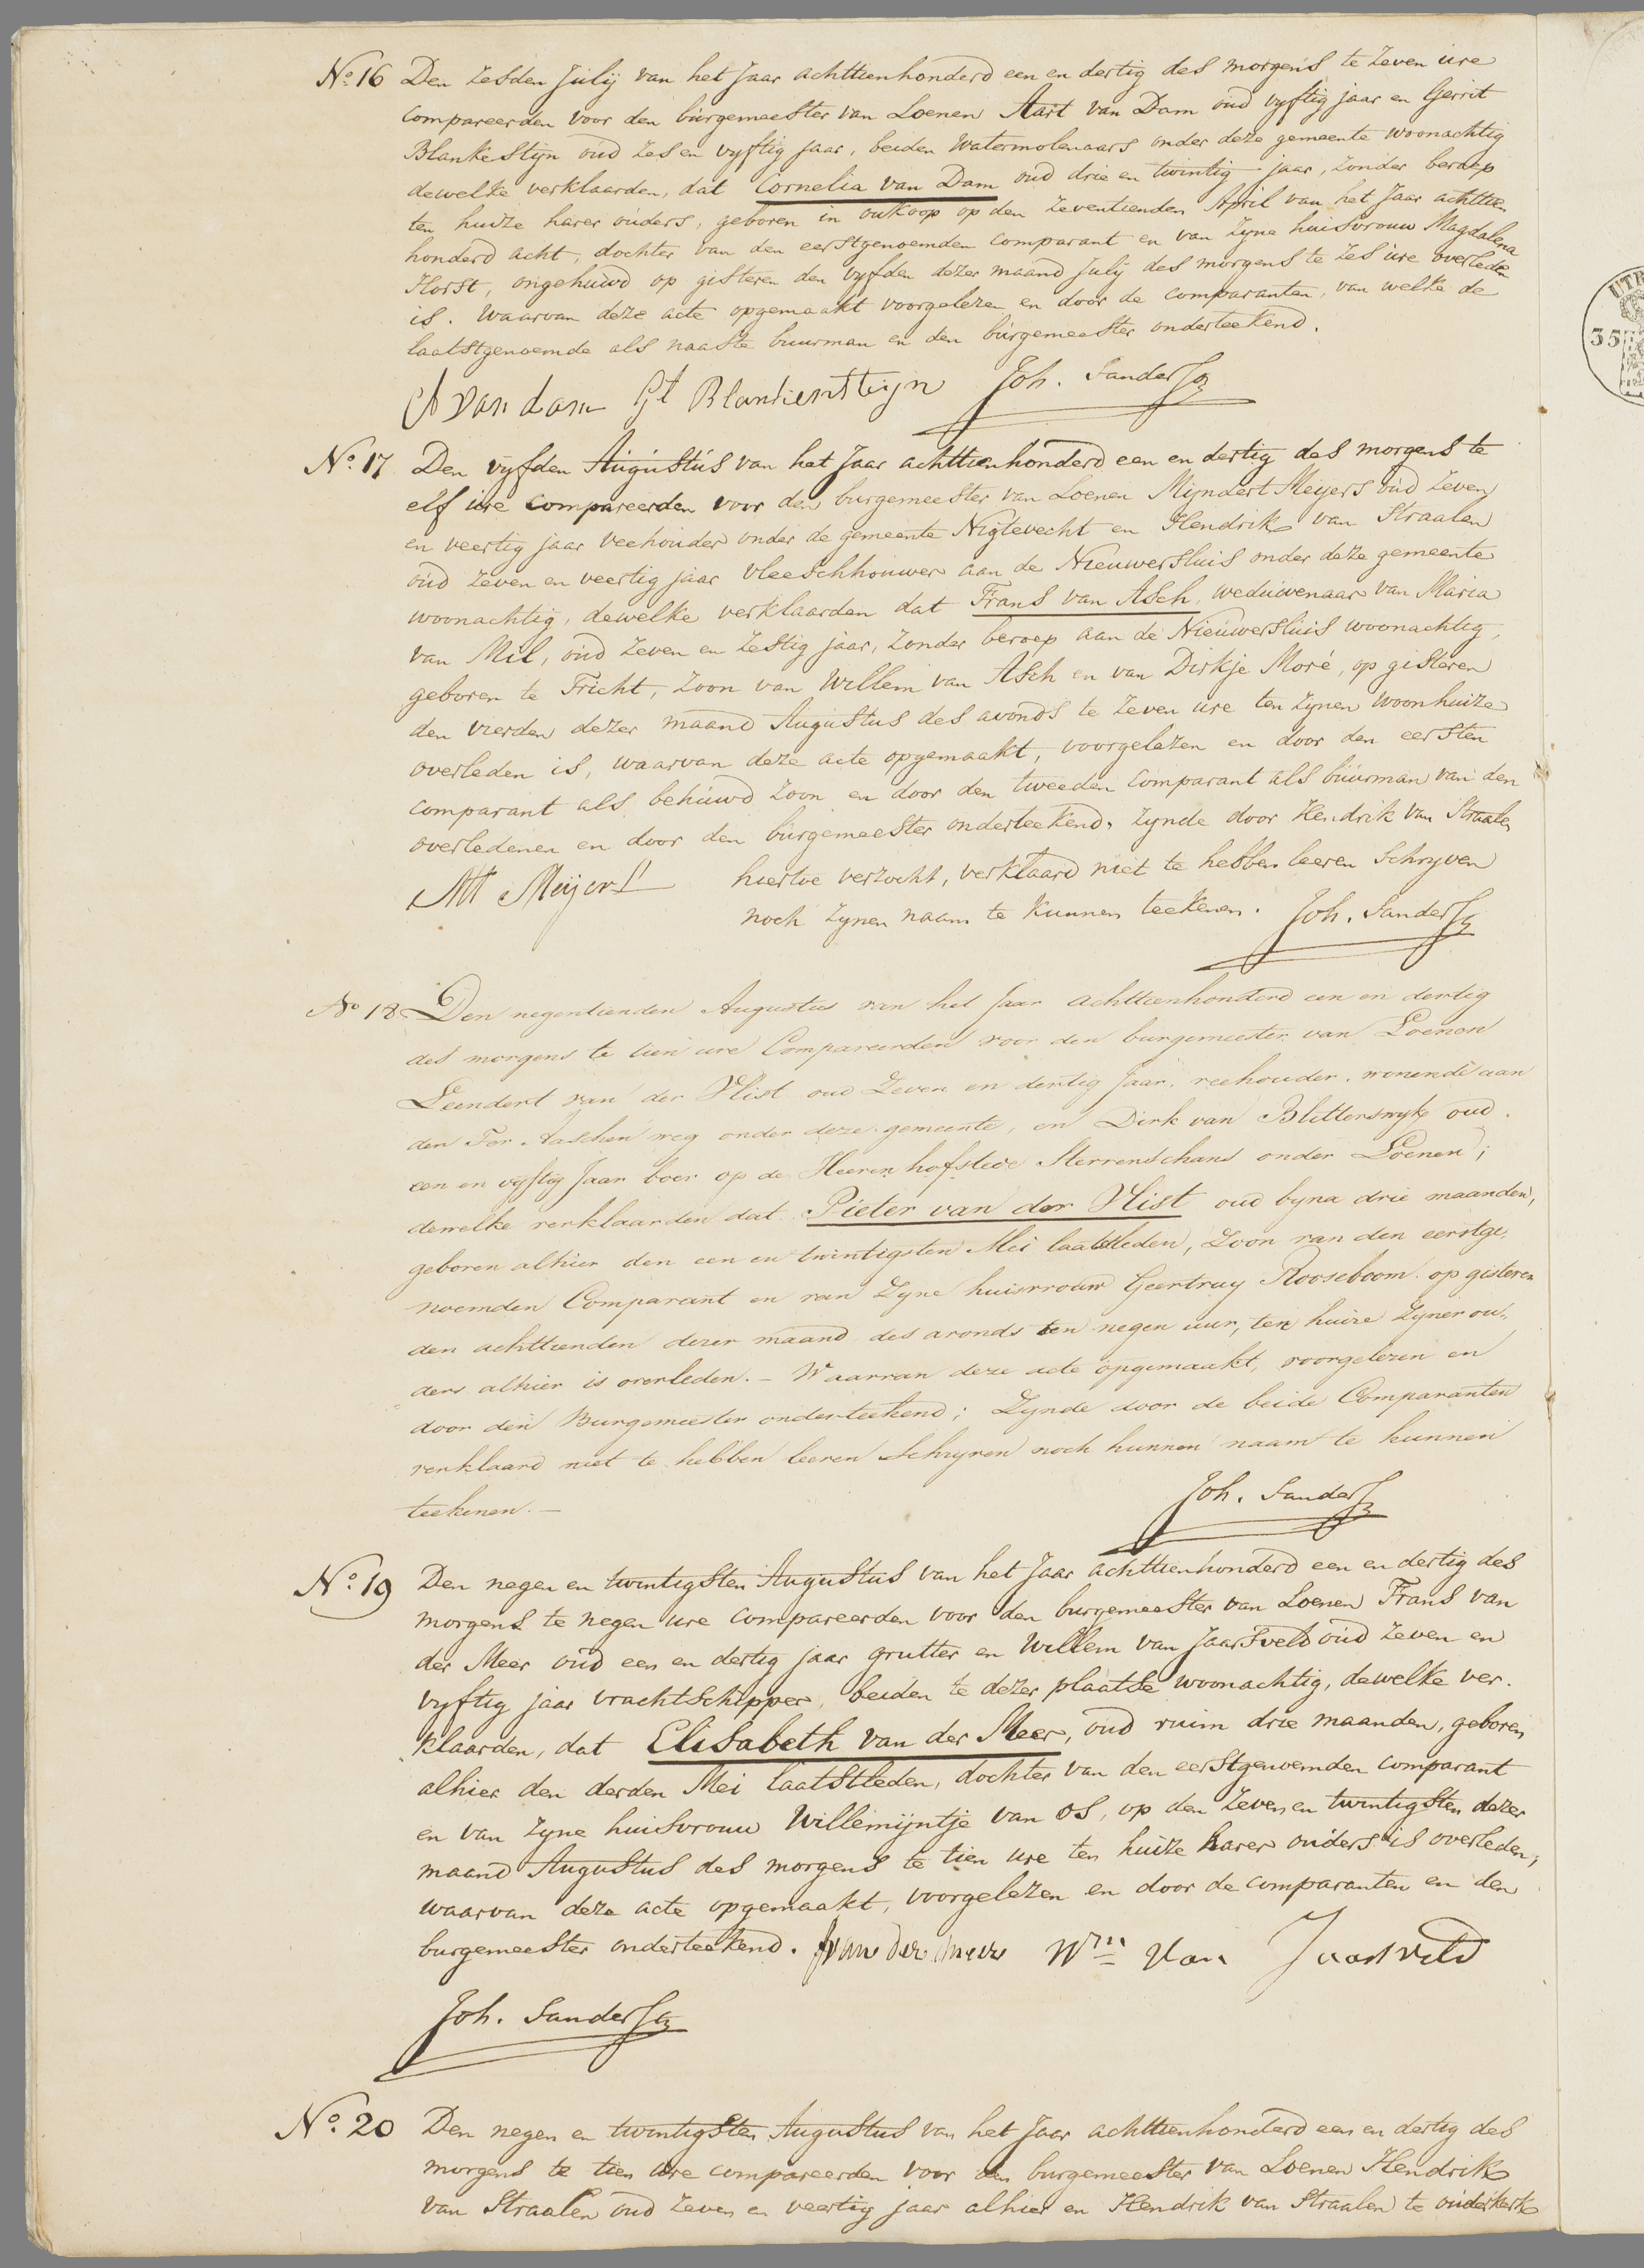 No. 16 Den zesden July van het Jaar achttienhonderd een en dertig des morgens te zeven ure
compareerden voor den burgemeester van Loenen Aart van Dam oud vyftig jaar en Gerrit
Blankestijn oud zes en vyftig jaar, beiden Watermolenaars onder deze gemeente woonachtig
dewelke verklaarden, dat Cornelia van Dam oud drie en twintig jaar, zonder beroep
ten huize harer ouders, geboren in oukoop op den zeventienden April van het Jaar achttien
honderd acht, dochter van den eerstgenoemden comparant en van zyne huisvrouw Magdalena
Horst, ongehuwd op gisteren den vyfden dezer maand July des morgens te zes ure overleden
is. Waarvan deze acte opgemaakt voorgelezen en door de comparanten, van welke de
laatstgenoemde als naaste buurman en den burgemeester onderteekend.
A van dam Gt Blankenstijn Joh. Sanders
No. 17 Den vyfden Augustus van het Jaar achttienhonderd een en dertig des morgens te
elf ure compareerden voor den burgemeester van Loenen Mijndert Meijers oud zeven
en veertig jaar veehouder onder de gemeente Nigtevecht en Hendrik van Straalen
oud zeven en veertig jaar vleeschhouwer aan de Nieuwersluis onder deze gemeente
woonachtig, dewelke verklaarden dat Frans van Asch, weduwenaar van Maria
van Mil, oud zeven en zestig jaar, zonder beroep aan de Nieuwersluis woonachtig,
geboren te Tricht, zoon van Willem van Asch en van Dirkje Moré, op gisteren
den vierden dezer maand Augustus des avonds te zeven ure ten zynen woonhuize
overleden is, waarvan deze acte opgemaakt, voorgelezen en door den eersten
comparant als behuwd zoon en door den tweeden comparant als buurman van den
overledenen en door den burgemeester onderteekend, zynde door Hendrik van Straalen
hiertoe verzocht, verklaard niet te hebben leeren schryven
Mt Meijers
noch zynen naam te kunnen teekenen. Joh. Sanders
No 18 Den negentienden Augustus van het Jaar achttienhonderd een en dertig
des morgens te tien ure Compareerden voor den burgemeester van Loenen
Leendert van der Vlist oud Zeven en dertig Jaar, veehouder, wonende aan
den Ter Aaschen weg onder deze gemeente, en Dirk van Blitterswyk oud
een en vyftig Jaar boer op de Heeren hofstede Sterrenschans onder Loenen;
dewelke verklaarden dat Pieter van der Vlist oud byna drie maanden,
geboren alhier den een en twintigsten Mei laatstleden, Zoon van den eerstge,
noemden Comparant en van Zyne huisvrouw Geertruy Rooseboom op gisteren
den achttienden dezer maand des avonds ten negen uur, ten huize Zyner ou,
ders alhier is overleden. - Waarvan deze acte opgemaakt, voorgelezen en
door den Burgemeester onderteekend; Zynde door de beide Comparanten
verklaard niet te hebben leeren Schryven noch hunnen naam te kunnen
teekenen. - Joh. Sanders
No. 19 Den negen en twintigsten Augustus van het Jaar achttienhonderd een en dertig des
morgens te negen ure compareerden voor den burgemeester van Loenen Frans van
der Meer oud een en dertig jaar grutter en Willem van Jaarsveld oud zeven en
vyftig jaar vrachtschipper, beiden te dezer plaatse woonachtig, dewelke ver.
klaarden, dat Elisabeth van der Meer, oud ruim drie maanden, geboren
alhier den derden Mei laatstleden, dochter van den eerstgenoemden comparant
en van zyne huisvrouw Willemijntje van Os, op den zeven en twintigsten dezer
maand Augustus des morgens te tien ure ten huize harer ouders is overleden,
waarvan deze acte opgemaakt, voorgelezen en door de comparanten en den
burgemeester onderteekend. F van der meer Wm van Jaarsveld
Joh. Sanders
No. 20 Den negen en twintigsten Augustus van het Jaar achttienhonderd een en dertig des
morgens te tien ure compareerden voor den burgemeester van Loenen Hendrik
van Straalen oud zeven en veertig jaar alhier en Hendrik van Straalen te ouderkerk
UTR
35